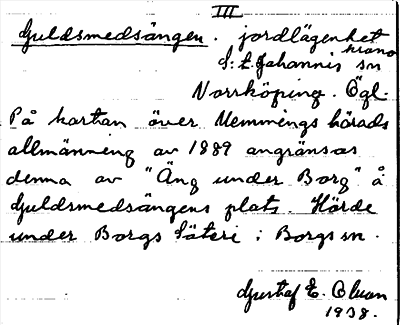 III
Guldsmedsängen. jordlägenhet
krono
S:t Johannis sn
Norrköping. Ögl.
På kartan över Memmings härads
allmänning av 1889 angränsas
denna av "Äng under Borg" å
Guldsmedsängens plats. Hörde
under Borgs Säteri i Borgs sn.
Gustaf E. Olsson
1938.